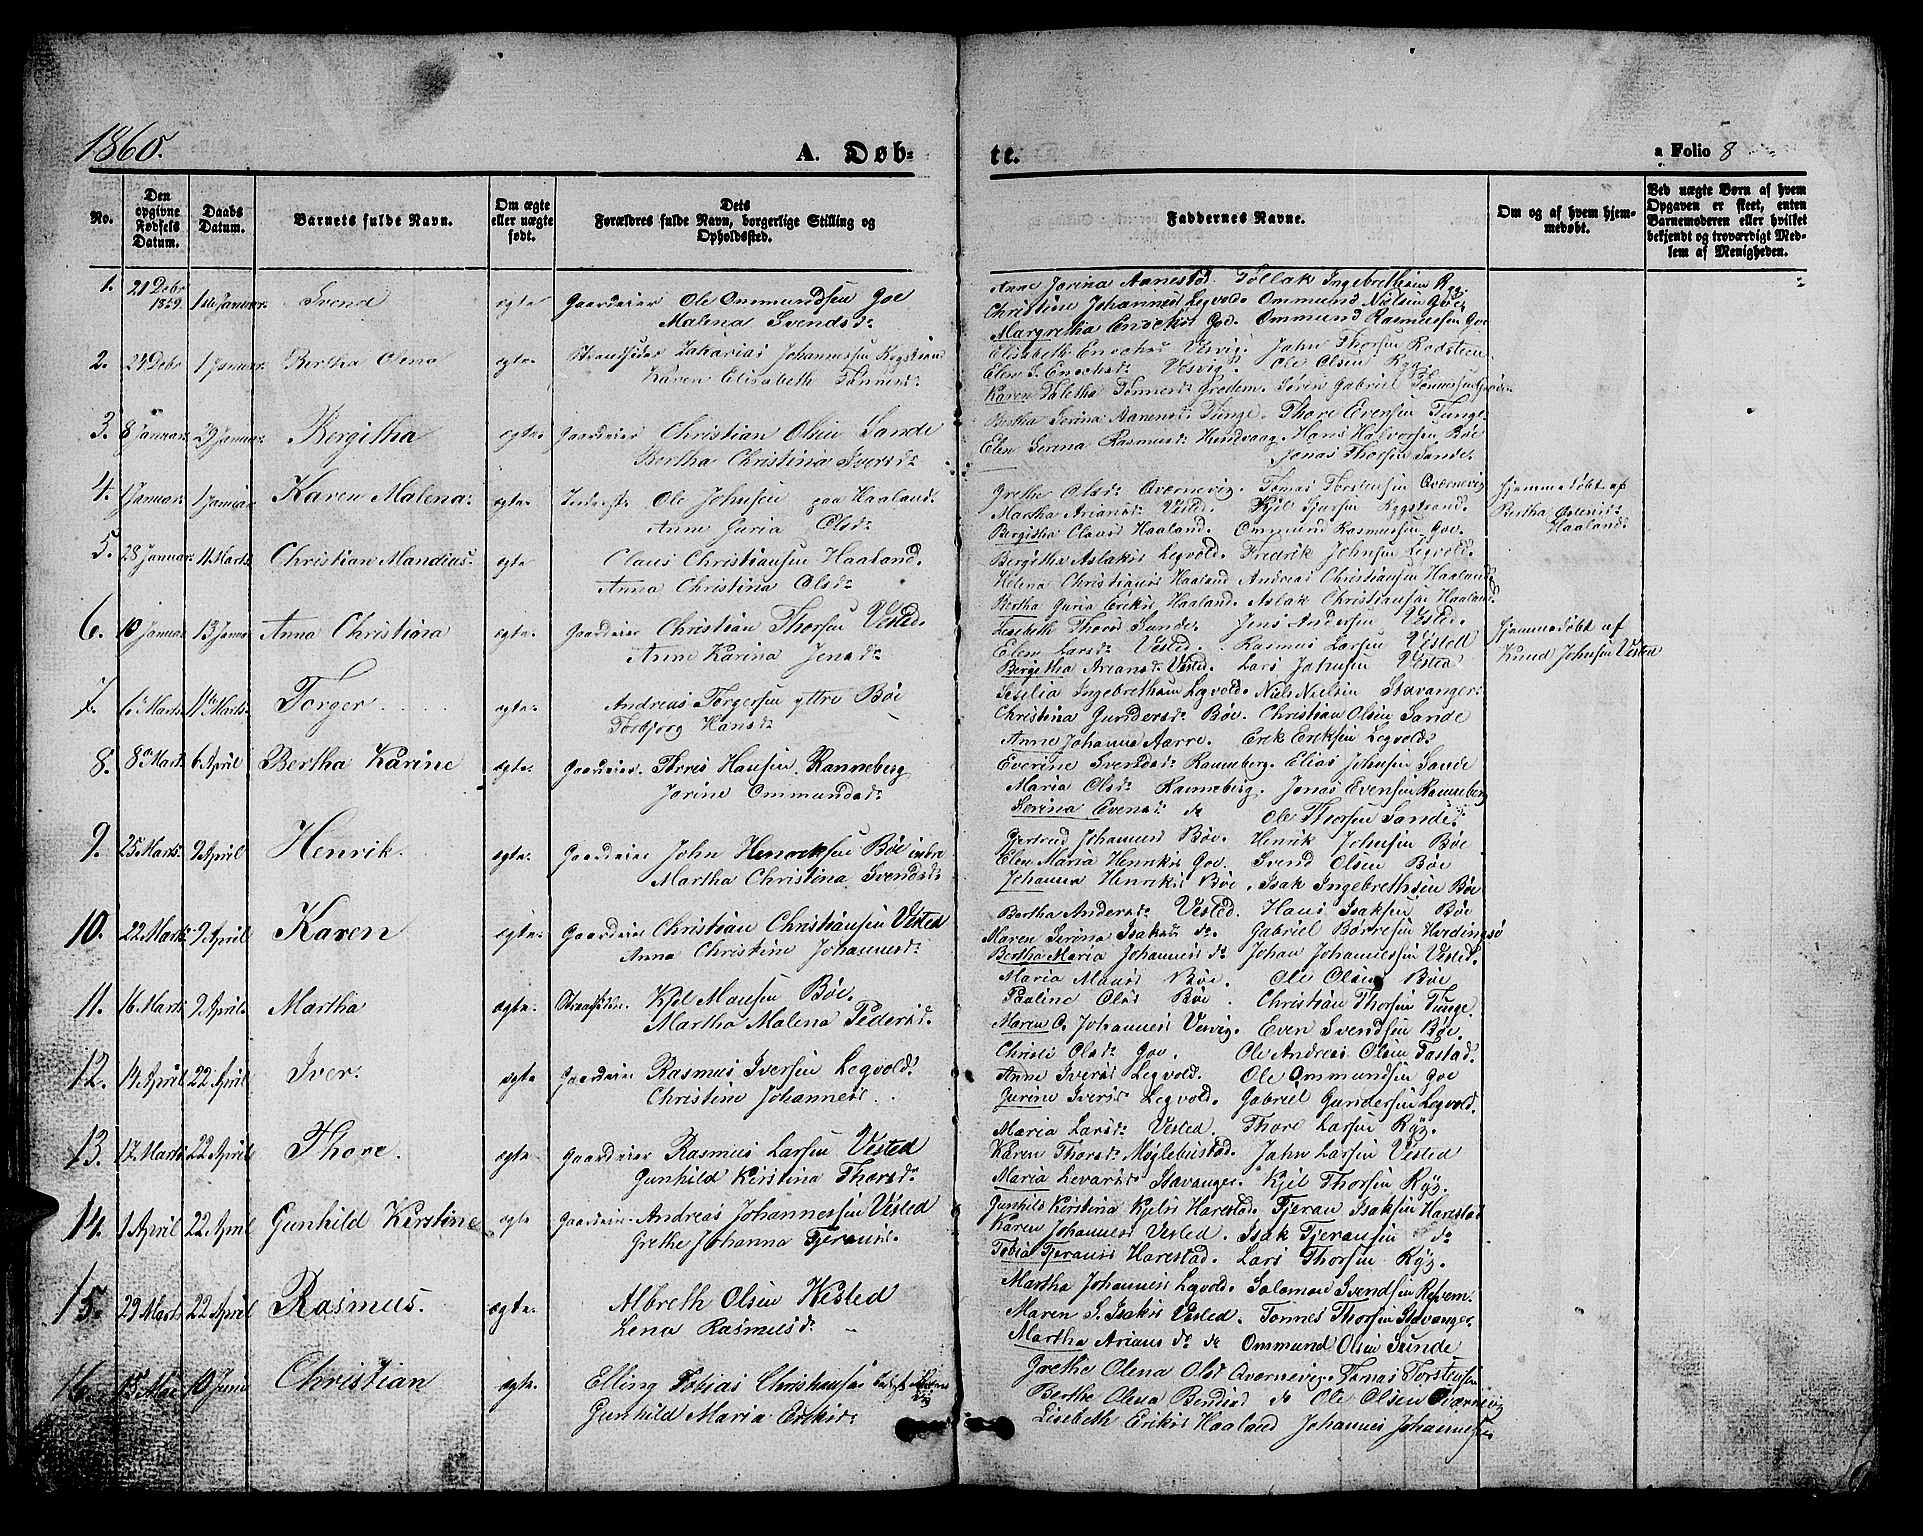 1860.
A. Døb-
te.
a Folio 8
No.
Den opgivne Fødsels Datum.
Daabs Datum.
Barnets fulde Navn.
Om ægte eller uægte født.
Dets Forældres fulde Navn, borgerlige Stilling og Opholdssted.
Faddernes Navne.
Om og af hvem hjemmedøbt.
Ved uægte Børn af hvem Opgaven er skeet, enten Barnemoderen eller hvilket bekjendt og troværdigt Medlem af Menigheden.
1. 21 Debr 1859. 1ste Januar. Svend ægte Gaardeier Ole Ommundsen Goe
Malena Svendsd:
Anne Jorina Aanestad. Tollak Ingebrethsen Ryg.
Christine Johannesd Legvold. Ommund Nielsen Goe.
Margretha Enocksd Goe. Ommund Rasmussen Goe
2. 24 Debr 1 Januar. Bertha Olena ægte Strandsider Zakarias Johannessen Rygstrand
Karen Elisabeth Tønnesd:
Elisabeth Enochsd Vesvig. John Thorsen Rodsteen.
Elen S. Enochsd: Vesvig. Ole Olsen Ryg.
Karen Taletha Tønnesd: Grødem. Søren Gabriel Tønnessen
3. 8 Januar. 29 Januar. Bergitha ægte Gaardeier Christian Olsen Sande
Bertha Christina Iversd:
Bertha Serina Aanensd: Tunge. Thore Evensen Tunge.
Elen Serena Rasmusd: Hundvaag. Hans Halvorsen Bøe
Jonas Thorsen Sande.
4. 1 Januar. 1 Januar. Karen Malena. ægte Inderst. Ole Johnsen paa Haaland.
Anne Guria Olsd:
Grethe Olsd: Qværnevig. Tomas Torstensen Qværnevig
Martha Ariansd: Vested. Kjel Sjursen Rygstrand.
Bergitha Clausd Haaland. Ommund Rasmussen Goe.
Hjemmedøbt af
Bertha Østensd:
Haaland.
5. 28 Januar. 11 Marts. Christian Mandius. ægte Claus Christiansen Haaland.
Anna Christina Olsd:
Bergitha Aslaksd Legvold. Fredrik Johnsen Legvold.
Helena Christiansd Haaland Andreas Christiansen Haaland.
Bertha Guria Eriksd Haaland. Aslak Christiansen Haaland.
6. 10 Januar 13 Janr Anna Christina ægte. Gaardeier Christian Thorsen Vested.
Anne Karina Jensd:
Lisebeth Thorsd Sunde. Jens Andersen Vested.
Elen Larsd: Vested. Rasmus Larsen Vested
Bergitha Ariansd: Vested. Lars Johnsen Vested
Hjemmedøbt af
Knud Johnsen Vested
7. 6 Marts. 11 Marts. Torger ægte. Andreas Torgersen yttre Bøe
Torbjorg Hansd:
Sesilia Ingebrethsen Legvold. Niels Nielsen Stavanger.
Christina Gundersd: Bøe. Christian Olsen Sande
Anne Johanna Aarre. Erek Eriksen Legvold.
8. 8 Marts 6 April Bertha Karine ægte. Gaardeier. Torres Hansen. Ranneberg
Jorine Ommundsd:
Everine Svendsd: Ranneberg. Elias Johnsen Sande
Maria Olsd: Ranneberg. Jonas Evensen Ranneberg
Serina Evensd: do Ole Thorsen Sande.
9. 25 Marts. 9 April Henrik. ægte. Gaardeier John Henricksen Bøe indre
Martha Christina Svendsd:
Gjertrud Johannesd Bøe. Henrik Johnsen Bøe
Elen Maria Henriksd Goe. Svend Olsen Bøe
Johanna Henriksd Bøe. Isak Ingebrethsen Bøe
10. 22 Marts. 9 April Karen ægte. Gaardeier Christian Christiansen Vested
Anna Christine Johannesd:
Bertha Andersd: Vested. Hans Isaksen Bøe
Maren Serina Isaksd do. Gabriel Børresen Hvidingsø
Bertha Maria Johannesd do Johan Johannessen Vested.
11. 16 Marts 9 April. Martha ægte. Strandsider. Kjel Mansen Bøe.
Martha Malena Pedersd.
Maria Mansd Bøe Ole Olsen Bøe.
Pauline Olsd Bøe. Christian Thorsen Tunge.
Maren O. Johannesd Vesvig. Even Svendsen Bøe.
12. 14 April 22 April Iver. ægte Gaardeier Rasmus Iversen Legvold.
Christine Johannesd.
Christi Olsd: Goe. Ole Andreas Olsen Tastad.
Anne Iversd Legvold. Ole Ommundsen Goe
Gurine Iversd Legvold. Gabriel Gundersen Legvold.
13. 17 Marts 22 April Thore. ægte Gaardeier Rasmus Larsen Vested
Gunhild Kirstina Thorsd:
Maria Larsd: Vested. Thore Larsen Ryg.
Karen Thorsd: Møglebustad. John Larsen Vested
Maria Levarsd: Stavanger. Kjel Thorsen Ryg.
14. 1 April 22 April Gunhild Kirstine ægte Gaardeier. Andreas Johannessen Vested
Grethe Johanna Tjeransd.
Gunhild Kirstina Kjelsd Harestad. Tjeran Isaksen Harestad
Karen Johannesd Vested. Isak Tjeransen do
Tobia Tjeransd Harestad. Lars Thorsen Ryg.
15. 29 Marts 22 April Rasmus. ægte. Albreth Olsen Vested
Lena Rasmusd:
Martha Johannesd Legvold. Salomon Svendsen Revem.
Maren S. Isaksd Vested. Tønnes Thorsen Stavanger
Martha Ariansd do Ommund Olsen Sunde
16. 15 Mai 10 Juni Christian ægte. Elling Tobias Christiansen
Gunhild Maria Eriksd:
Grethe Olena Olsd Qværnevig. Jonas Torstensen
Berthe Olena Bendisd do Ole Olsen Qværnevig
Lisebeth Eriksd Haaland Johannes Johannessen